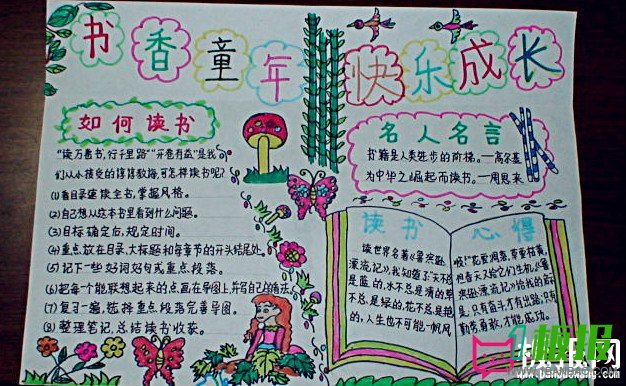 书香童年 快乐成长
如何读书
"读万卷书,行千里路""开卷有益"是我
们从小接受的谆谆教诲,可怎样读书呢?
(1)看目录连读全书,掌握风格。
(2)自己想从这本书里看到什么问题。
(3)目标确定后,规定时间。
(4)重点放在目录、大标题和每章节的开头结尾处。
(5)记下一些好词好句或重点段落。
(6)把每个能联想起来的点画在导图上,并写自己的看法。
(7)复习一遍,选择重点段落完善导图。
(8)整理笔记,总结读书收获。
名人名言
书籍是人类进步的阶梯。—高尔基
为中华之崛起而读书。—周恩来
读书 心得
读世界名著《鲁滨逊
漂流记》,我知道了:天不总
是蓝的,水不总是清的,草
不总是绿的,花不总是艳
的,人生也不可能一帆风
顺!花儿凋落,草要枯黄,
但春天又给它们生机。《鲁
滨逊漂流记》给我的启
示是:只有奋斗,才有出路,只有
勤劳勇敢,才能成功。
板报